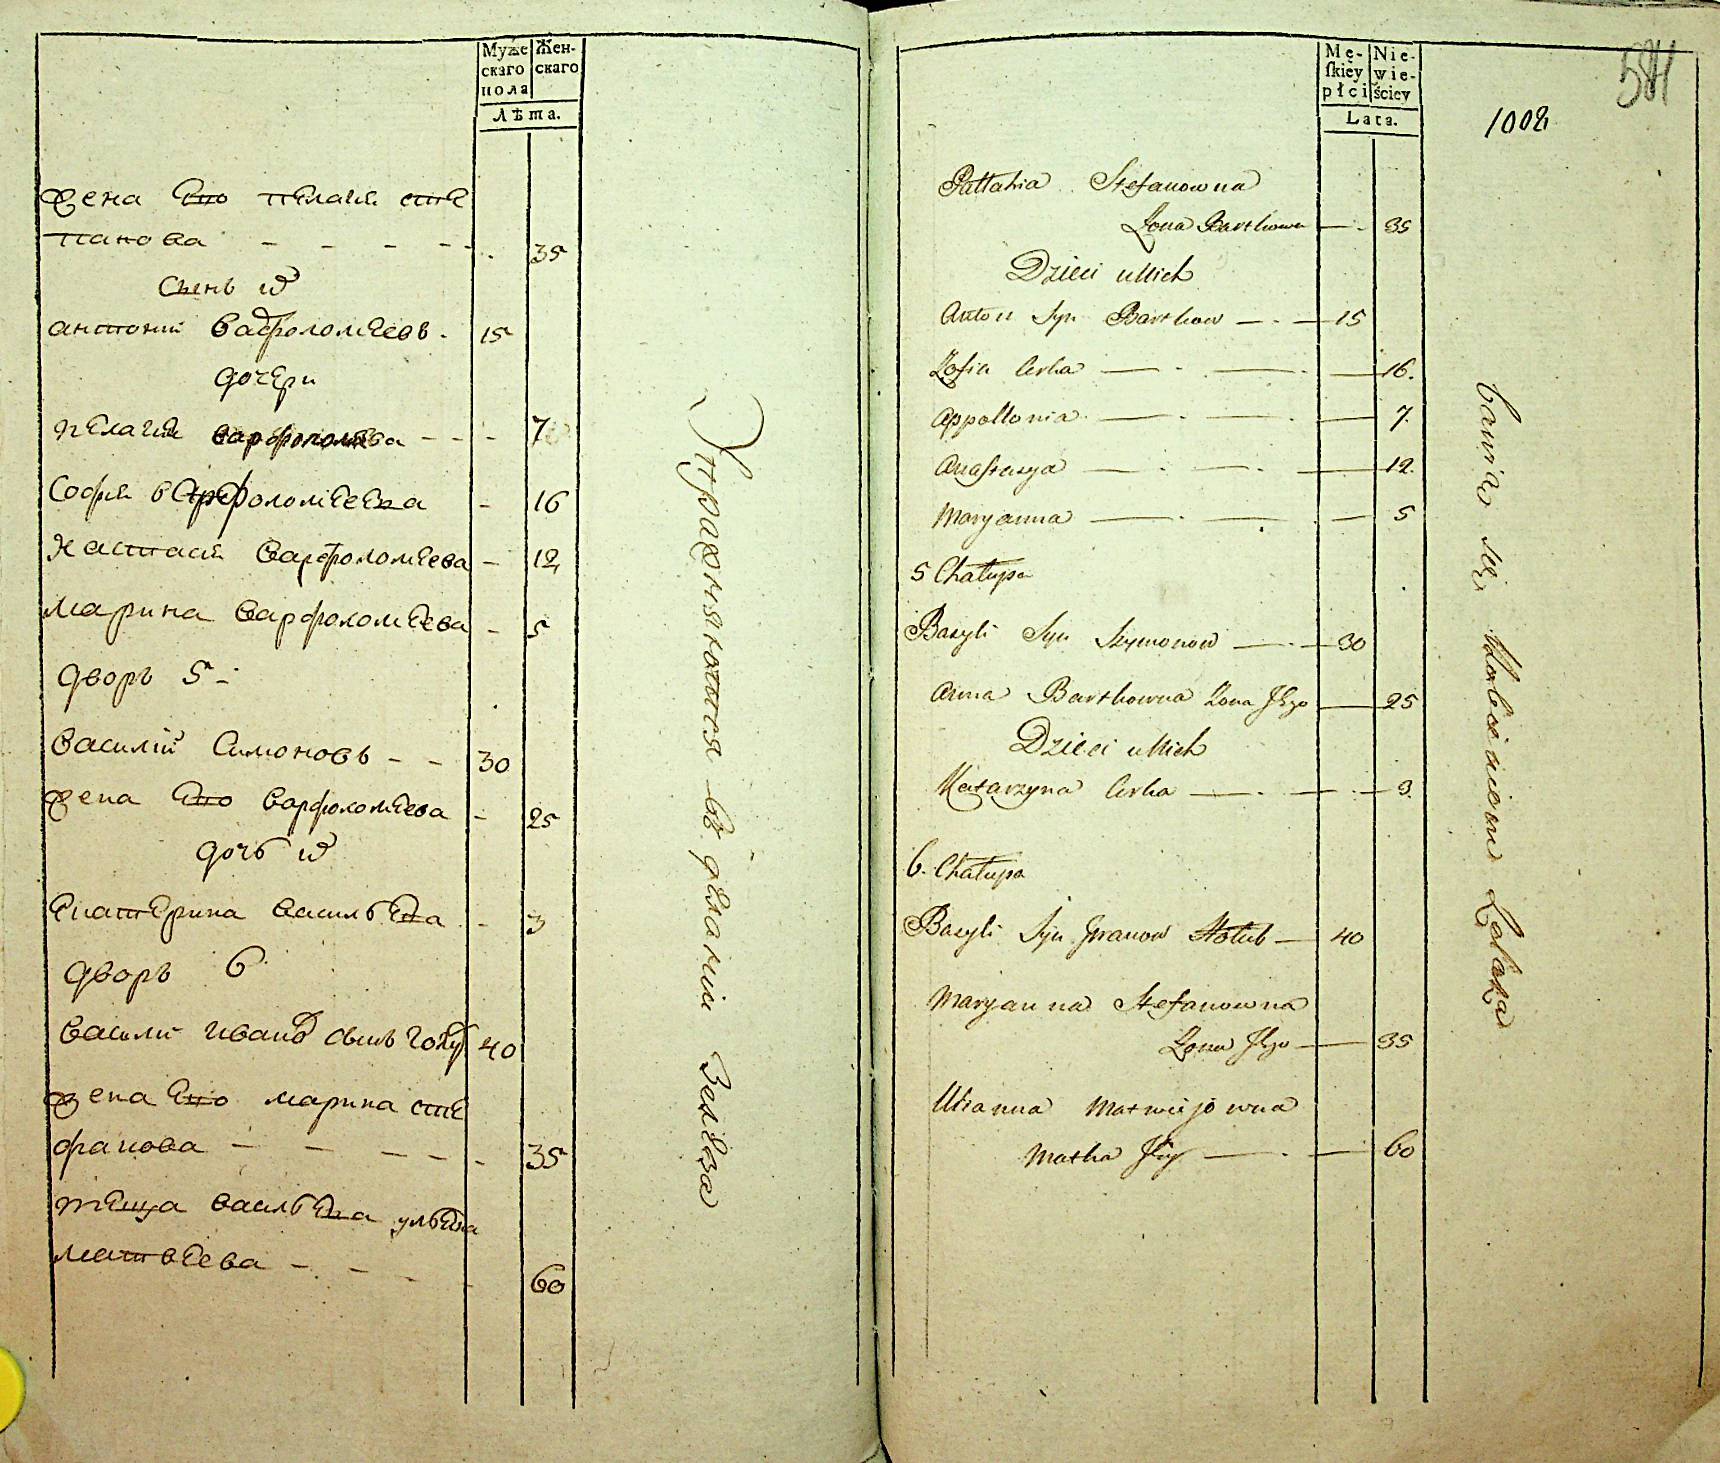 Муже
скаго
пола
Жен-
скаго
Лѣта.
жена Его пелагея сте
панова - - - - - 35
Сынъ и
антоний Варфоломеевъ - 15
дочери
пелагея варфоломеева - - - 7
Софья варфоломеевна - 16
Настася Варфоломеева - 12
марина Варфоломеева - 5
дворъ 5 -
Василий Симоновъ - - 30
жена Его Варфоломеева - 25
дочь и
Екатерина васильевна - 3
дворъ 6
Василий Иванов сынъ голуб 40
жена Его марина сте
фанова - - - - - 35
теща васильева ульяна
матвеева - - - - 60
Упражняются въ деланіи железа
Mę-
skiey
płci
Nie-
wie-
ściey
Lata.
1002
581
Pałłahia Stefanowna
Żona Bartkowa — 35
Dzieci u Nich
Anton Syn Bartkow — 15
Zofia Corka — 16.
Appollonia — 7.
Anastazya — 12
Maryanna — 5
5 Chałupa
Bazyli Syn Szymonow — 30
Anna Bartkowna Żona Jego — 25
Dzieci u Nich
Katarzyna Corka — 3.
6. Chałupa
Bazyli Syn Jwanow Hołub — 40
Maryanna Stefanowna
Żona Jego — 35
Ulianna Matwiejowna
Matka Jego — 60
bawią się Robieniem Żelaza